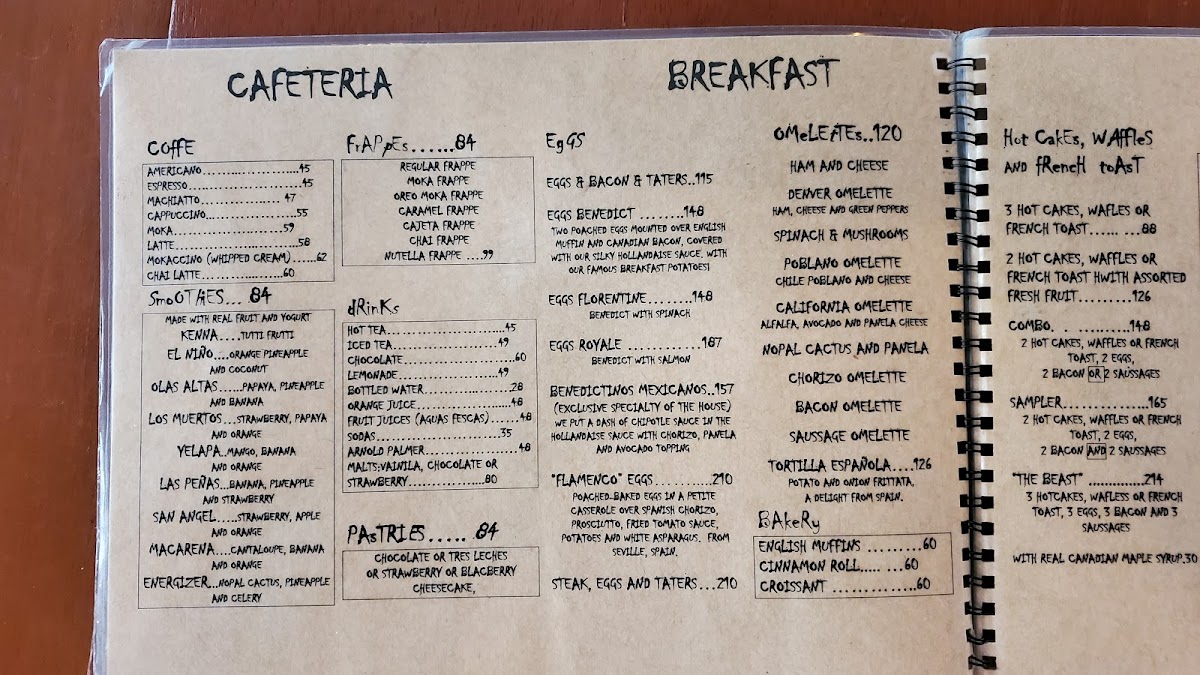 CAFETERIA
COffE
AMERICANO....................45
ESPRESSO.......................45
MACHIATTO.................. 47
CAPPUCCINO....................55
MOKA.........................59
LATTE............................58
MOKACCINO (WHIPPED CREAM)......62
CHAI LATTE...................60
SmoOTHiES... 84
MADE WITH REAL FRUIT AND YOGURT
KENNA....TUTTI FRUTTI
EL NIÑO....ORANGE PINEAPPLE
AND COCONUT
OLAS ALTAS......PAPAYA, PINEAPPLE
AND BANANA
LOS MUERTOS...STRAWBERRY, PAPAYA
AND ORANGE
YELAPA..MANGO, BANANA
AND ORANGE
LAS PEÑAS...BANANA, PINEAPPLE
AND STRAWBERRY
SAN ANGEL.....STRAWBERRY, APPLE
AND ORANGE
MACARENA....CANTALOUPE, BANANA
AND ORANGE
ENERGIZER...NOPAL CACTUS, PINEAPPLE
AND CELERY
FrAPpEs......84
REGULAR FRAPPE
MOKA FRAPPE
OREO MOKA FRAPPE
CARAMEL FRAPPE
CAJETA FRAPPE
CHAI FRAPPE
NUTELLA FRAPPE ....99
dRinKs
HOT TEA..........................45
ICED TEA.........................49
CHOCOLATE........................60
LEMONADE.......................49
BOTTLED WATER....................28
ORANGE JUICE.....................48
FRUIT JUICES (AGUAS FESCAS)......48
SODAS............................35
ARNOLD PALMER....................48
MALTS:VAINILA, CHOCOLATE OR
STRAWBERRY.................80
PAsTRIES..... 84
CHOCOLATE OR TRES LECHES
OR STRAWBERRY OR BLACBERRY
CHEESECAKE,
BREAKFAST
EgGS
EGGS & BACON & TATERS..115
EGGS BENEDICT ........148
TWO POACHED EGGS MOUNTED OVER ENGLISH
MUFFIN AND CANADIAN BACON, COVERED
WITH OUR SILKY HOLLANDAISE SAUCE. WITH
OUR FAMOUS BREAKFAST POTATOES!
EGGS FLORENTINE........148
BENEDICT WITH SPINACH
EGGS ROYALE ..............187
BENEDICT WITH SALMON
BENEDICTINOS MEXICANOS..157
(EXCLUSIVE SPECIALTY OF THE HOUSE)
WE PUT A DASH OF CHIPOTLE SAUCE IN THE
HOLLANDAISE SAUCE WITH CHORIZO, PANELA
AND AVOCADO TOPPING
"FLAMENCO" EGGS...........210
POACHED-BAKED EGGS IN A PETITE
CASSEROLE OVER SPANISH CHORIZO,
PROSCIUTTO, FRIED TOMATO SAUCE,
POTATOES AND WHITE ASPARAGUS. FROM
SEVILLE, SPAIN.
STEAK, EGGS AND TATERS...210
OMeLEtTEs..120
HAM AND CHEESE
DENVER OMELETTE
HAM, CHEESE AND GREEN PEPPERS
SPINACH & MUSHROOMS
POBLANO OMELETTE
CHILE POBLANO AND CHEESE
CALIFORNIA OMELETTE
ALFALFA, AVOCADO AND PANELA CHEESE
NOPAL CACTUS AND PANELA
CHORIZO OMELETTE
BACON OMELETTE
SAUSSAGE OMELETTE
TORTILLA ESPAÑOLA....126
POTATO AND ONION FRITTATA,
A DELIGHT FROM SPAIN.
BAkeRy
ENGLISH MUFFINS .........60
CINNAMON ROLL..... ...60
CROISSANT ..............60
Hot CakEs, WAffleS
AND fRencH toAsT
3 HOT CAKES, WAFLES OR
FRENCH TOAST...... ...88
2 HOT CAKES, WAFFLES OR
FRENCH TOAST HWITH ASSORTED
FRESH FRUIT.........126
COMBO. . ........148
2 HOT CAKES, WAFFLES OR FRENCH
TOAST, 2 EGGS,
2 BACON OR 2 SAUSSAGES
SAMPLER..............165
2 HOT CAKES, WAFFLES OR FRENCH
TOAST, 2 EGGS,
2 BACON AND 2 SAUSSAGES
"THE BEAST" ..............214
3 HOTCAKES, WAFLESS OR FRENCH
TOAST, 3 EGGS, 3 BACON AND 3
SAUSSAGES
WITH REAL CANADIAN MAPLE SYRUP.30